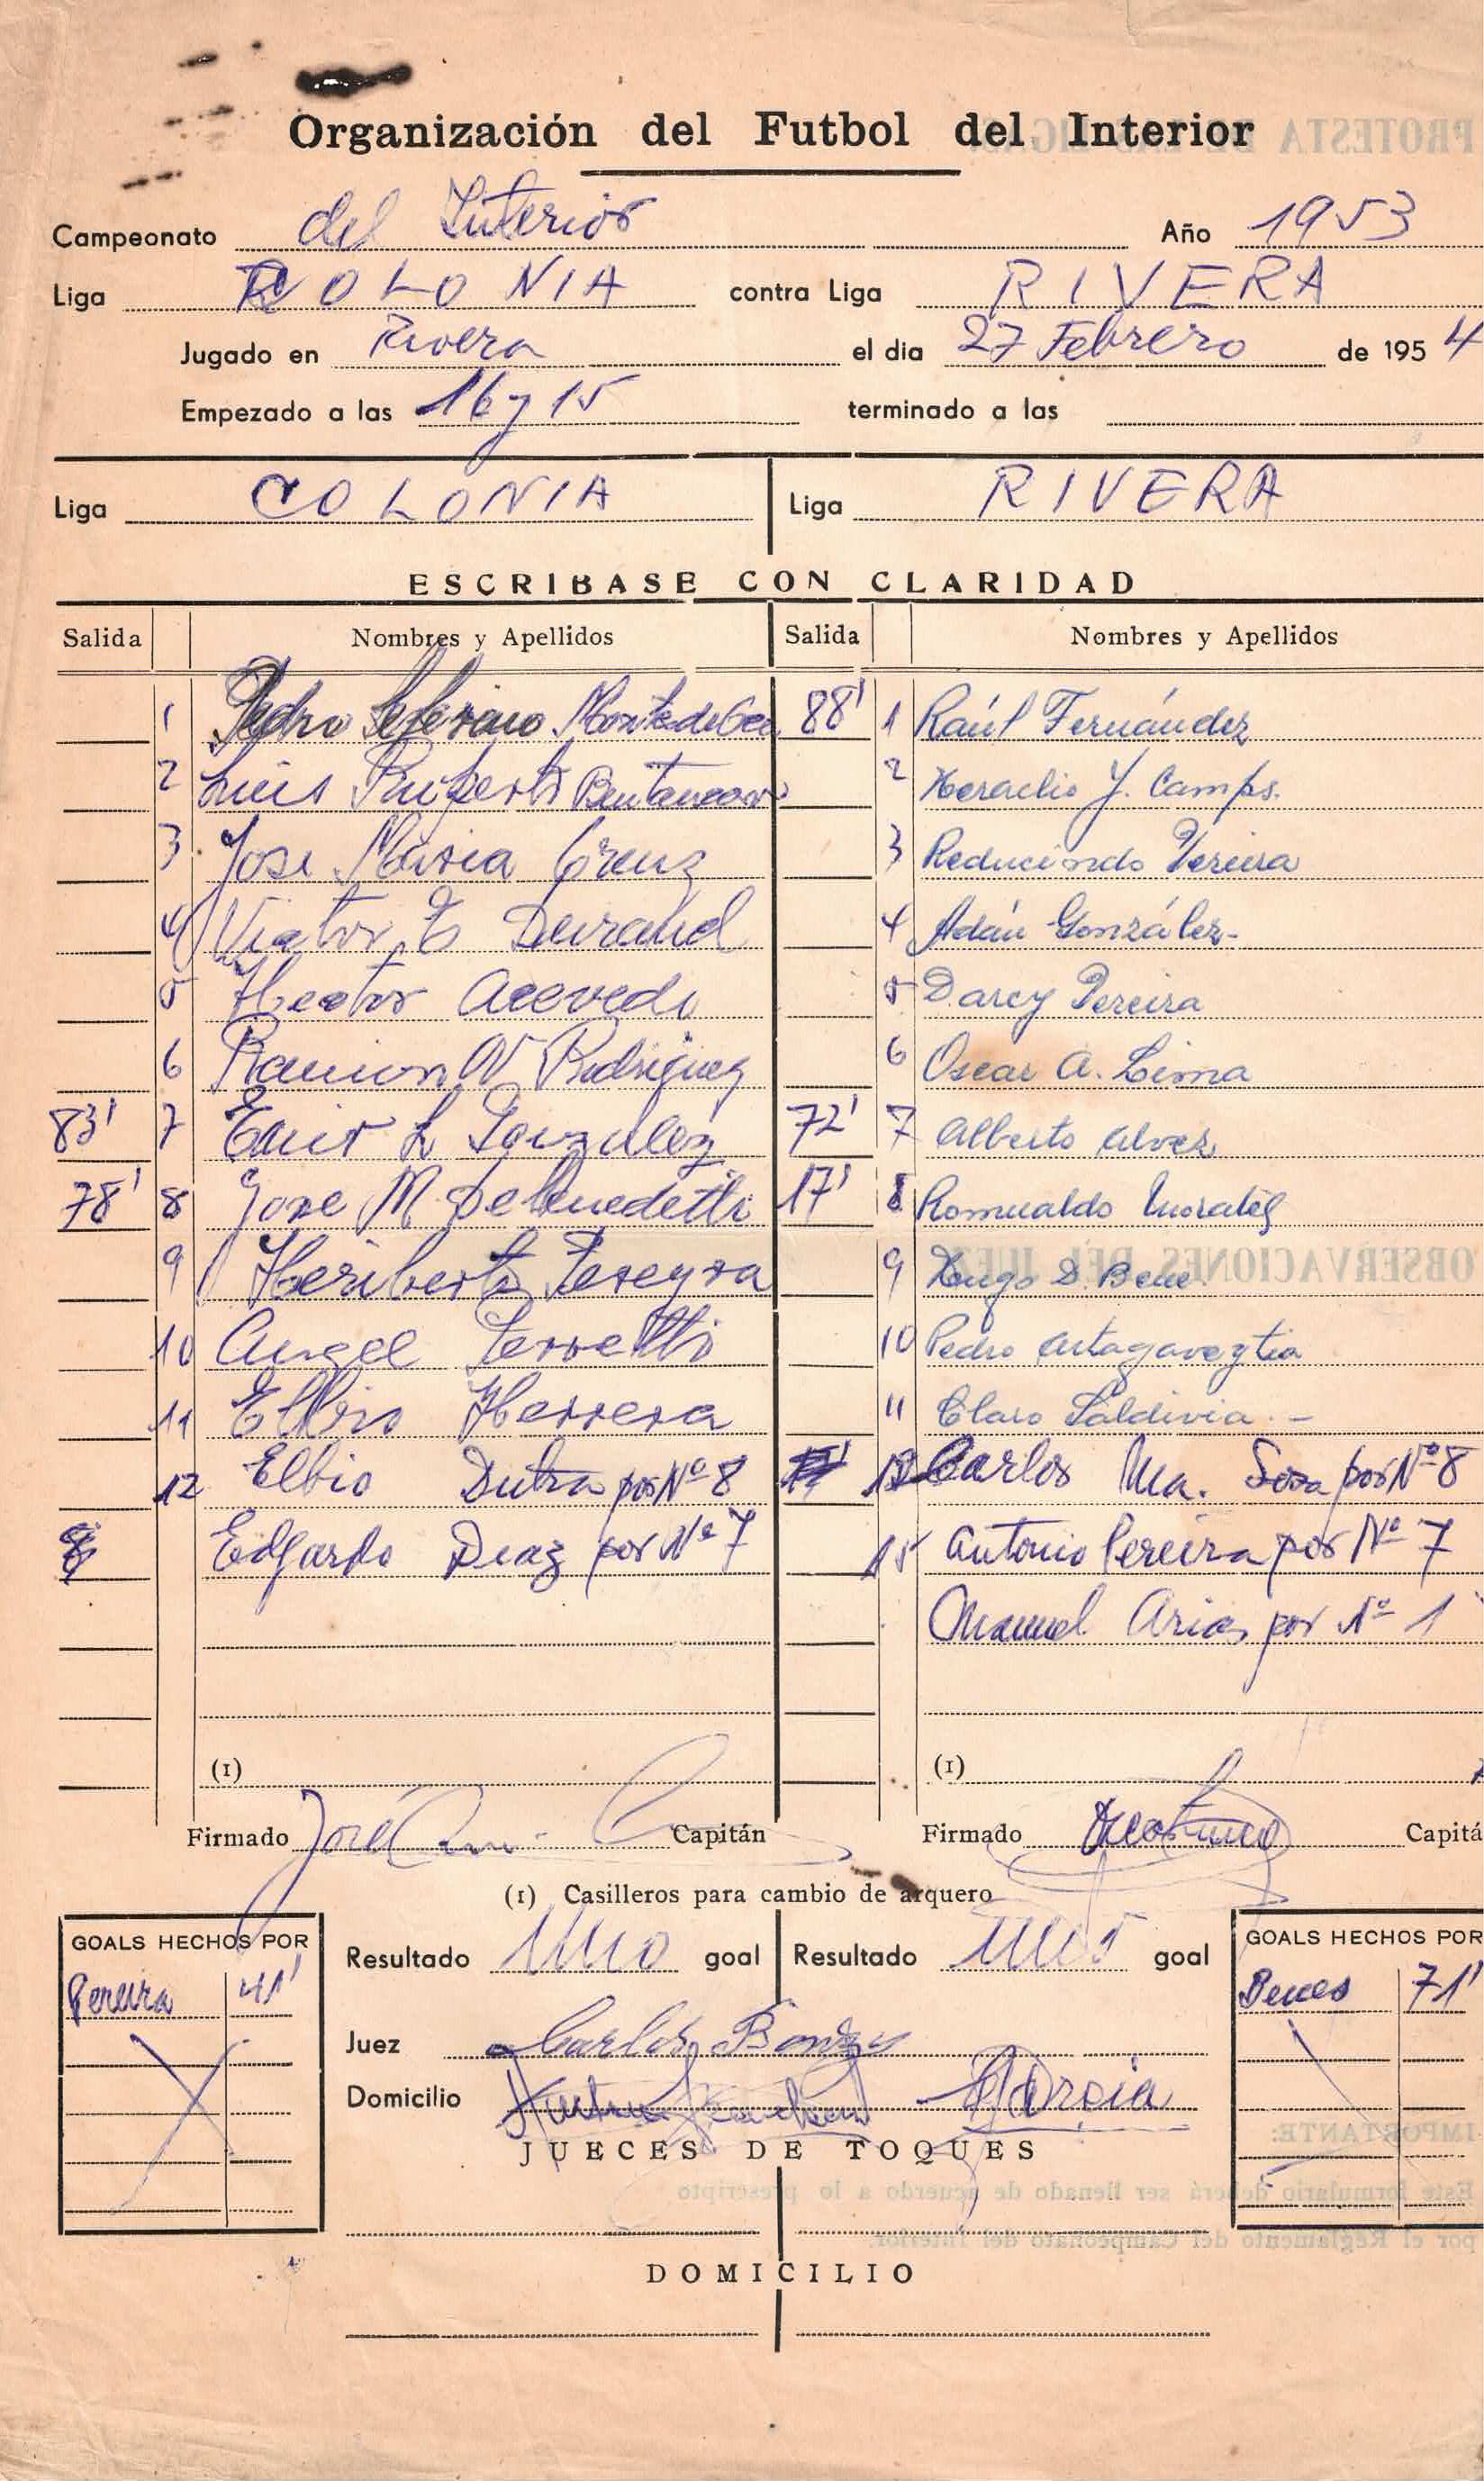 Organización del Futbol del Interior
Campeonato del Interior Año 1953
Liga COLONIA contra Liga RIVERA
Jugado en Rivera el dia 27 Febrero de 1954
Empezado a las 16 y 15 terminado a las
Liga COLONIA Liga RIVERA
ESCRIBASE CON CLARIDAD
Salida Nombres y Apellidos Salida Nombres y Apellidos
1 Pedro 88' 1 Raúl Fernández
2 Luis Bentancor 2 Heraclio J. Camps.
3 Jose Maria Cruz 3 Reducindo Pereira
4 Victor E Durand 4 Adán González-
5 Hector Acevedo 5 Darcy Pereira
6 Ramon N Rodriguez 6 Oscar A. Lima
83' 7 L Gonzalez 72' 7 Alberto Alvez
78' 8 Jose M Debenedetti 17' 8 Romualdo Morales
9 Heriberto Pereyra 9 Hugo D. Bene
10 Angel Ferretti 10 Pedro Artagaveytia
11 Elbio Herrera 11 Claro Saldivia.-
12 Elbio Dutra por Nº 8 Carlos Ma. Sosa por Nº 8
Edgardo Diaz por Nº 7 15 Antonio Pereira por Nº 7
Manuel Arias por Nº 1
(1) (1)
Firmado José Capitán Firmado Capitá
(1) Casilleros para cambio de arquero
GOALS HECHOS POR Resultado Uno goal Resultado uno goal GOALS HECHOS POR
Pereira 41' Benes 71'
Juez Carlos
Domicilio García
JUECES DE TOQUES
DOMICILIO
PROTESTA DE LAS LIGAS
OBSERVACIONES DEL JUEZ
IMPORTANTE:
Este formulario deberá ser llenado de acuerdo a lo prescripto
por el Reglamento del Campeonato del Interior.